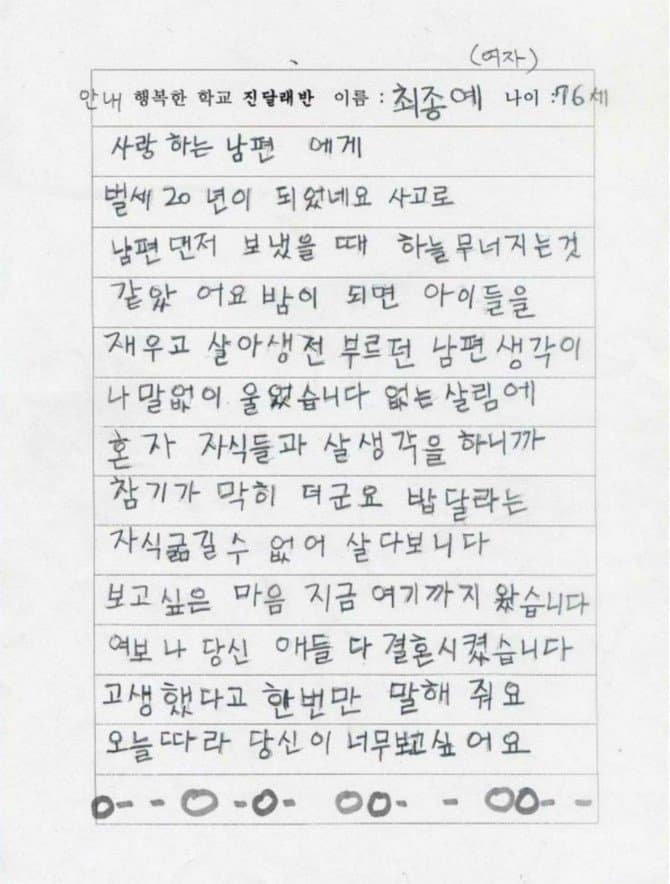 (여자)
안내 행복한 학교 진달래반 이름 : 최종예 나이 : 76세
사랑 하는 남편 에게
벌세 20 년이 되었네요 사고로
남편 먼저 보냈을 때 하늘무너지는것
같았 어요 밤이 되면 아이들을
재우고 살아생전 부르던 남편 생각이
나말없이 울었습니다 없는 살림에
혼자 자식들과 살생각을 하니까
참기가 막히 더군요 밥달라는
자식굶길수 없어 살다보니다
보고싶은 마음 지금 여기까지 왔습니다
여보 나 당신 애들 다 결혼시켰습니다
고생했다고 한번만 말해 줘요
오늘따라 당신이 너무보고싶어요